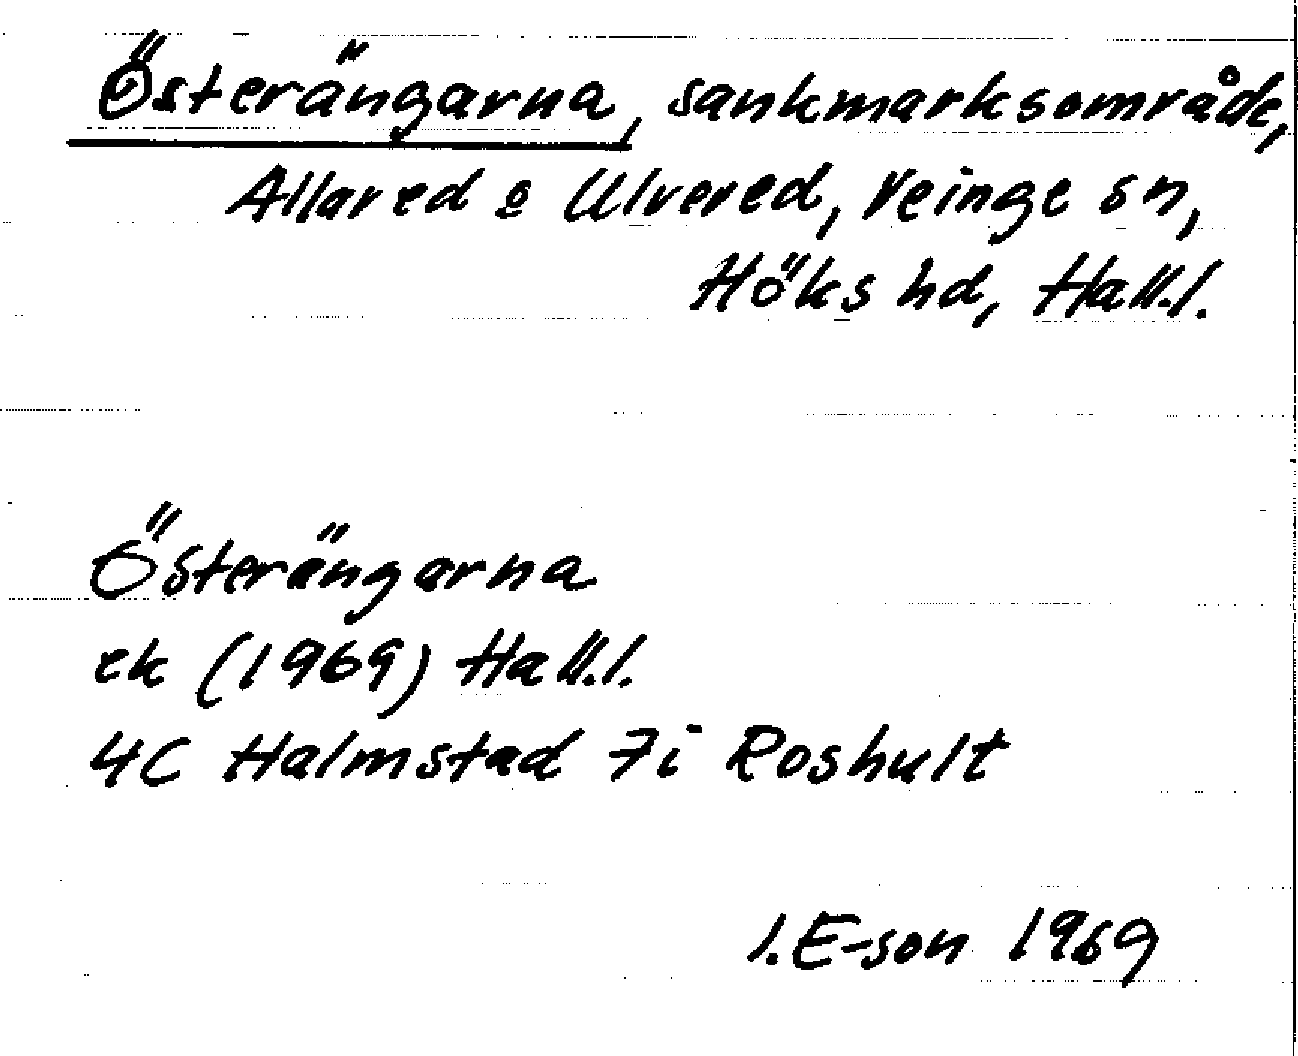 Österängarna, sankmarksområde,
Allared o Ulvered, Veinge sn,
Höks hd, Hall.l.
Österängarna
ek (1969) Hall.l.
4C Halmstad 7i Roshult
I.E-son 1969